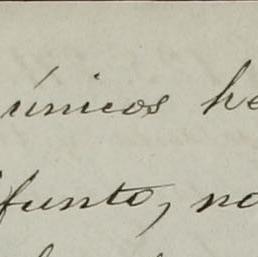 únicos he
funto, no